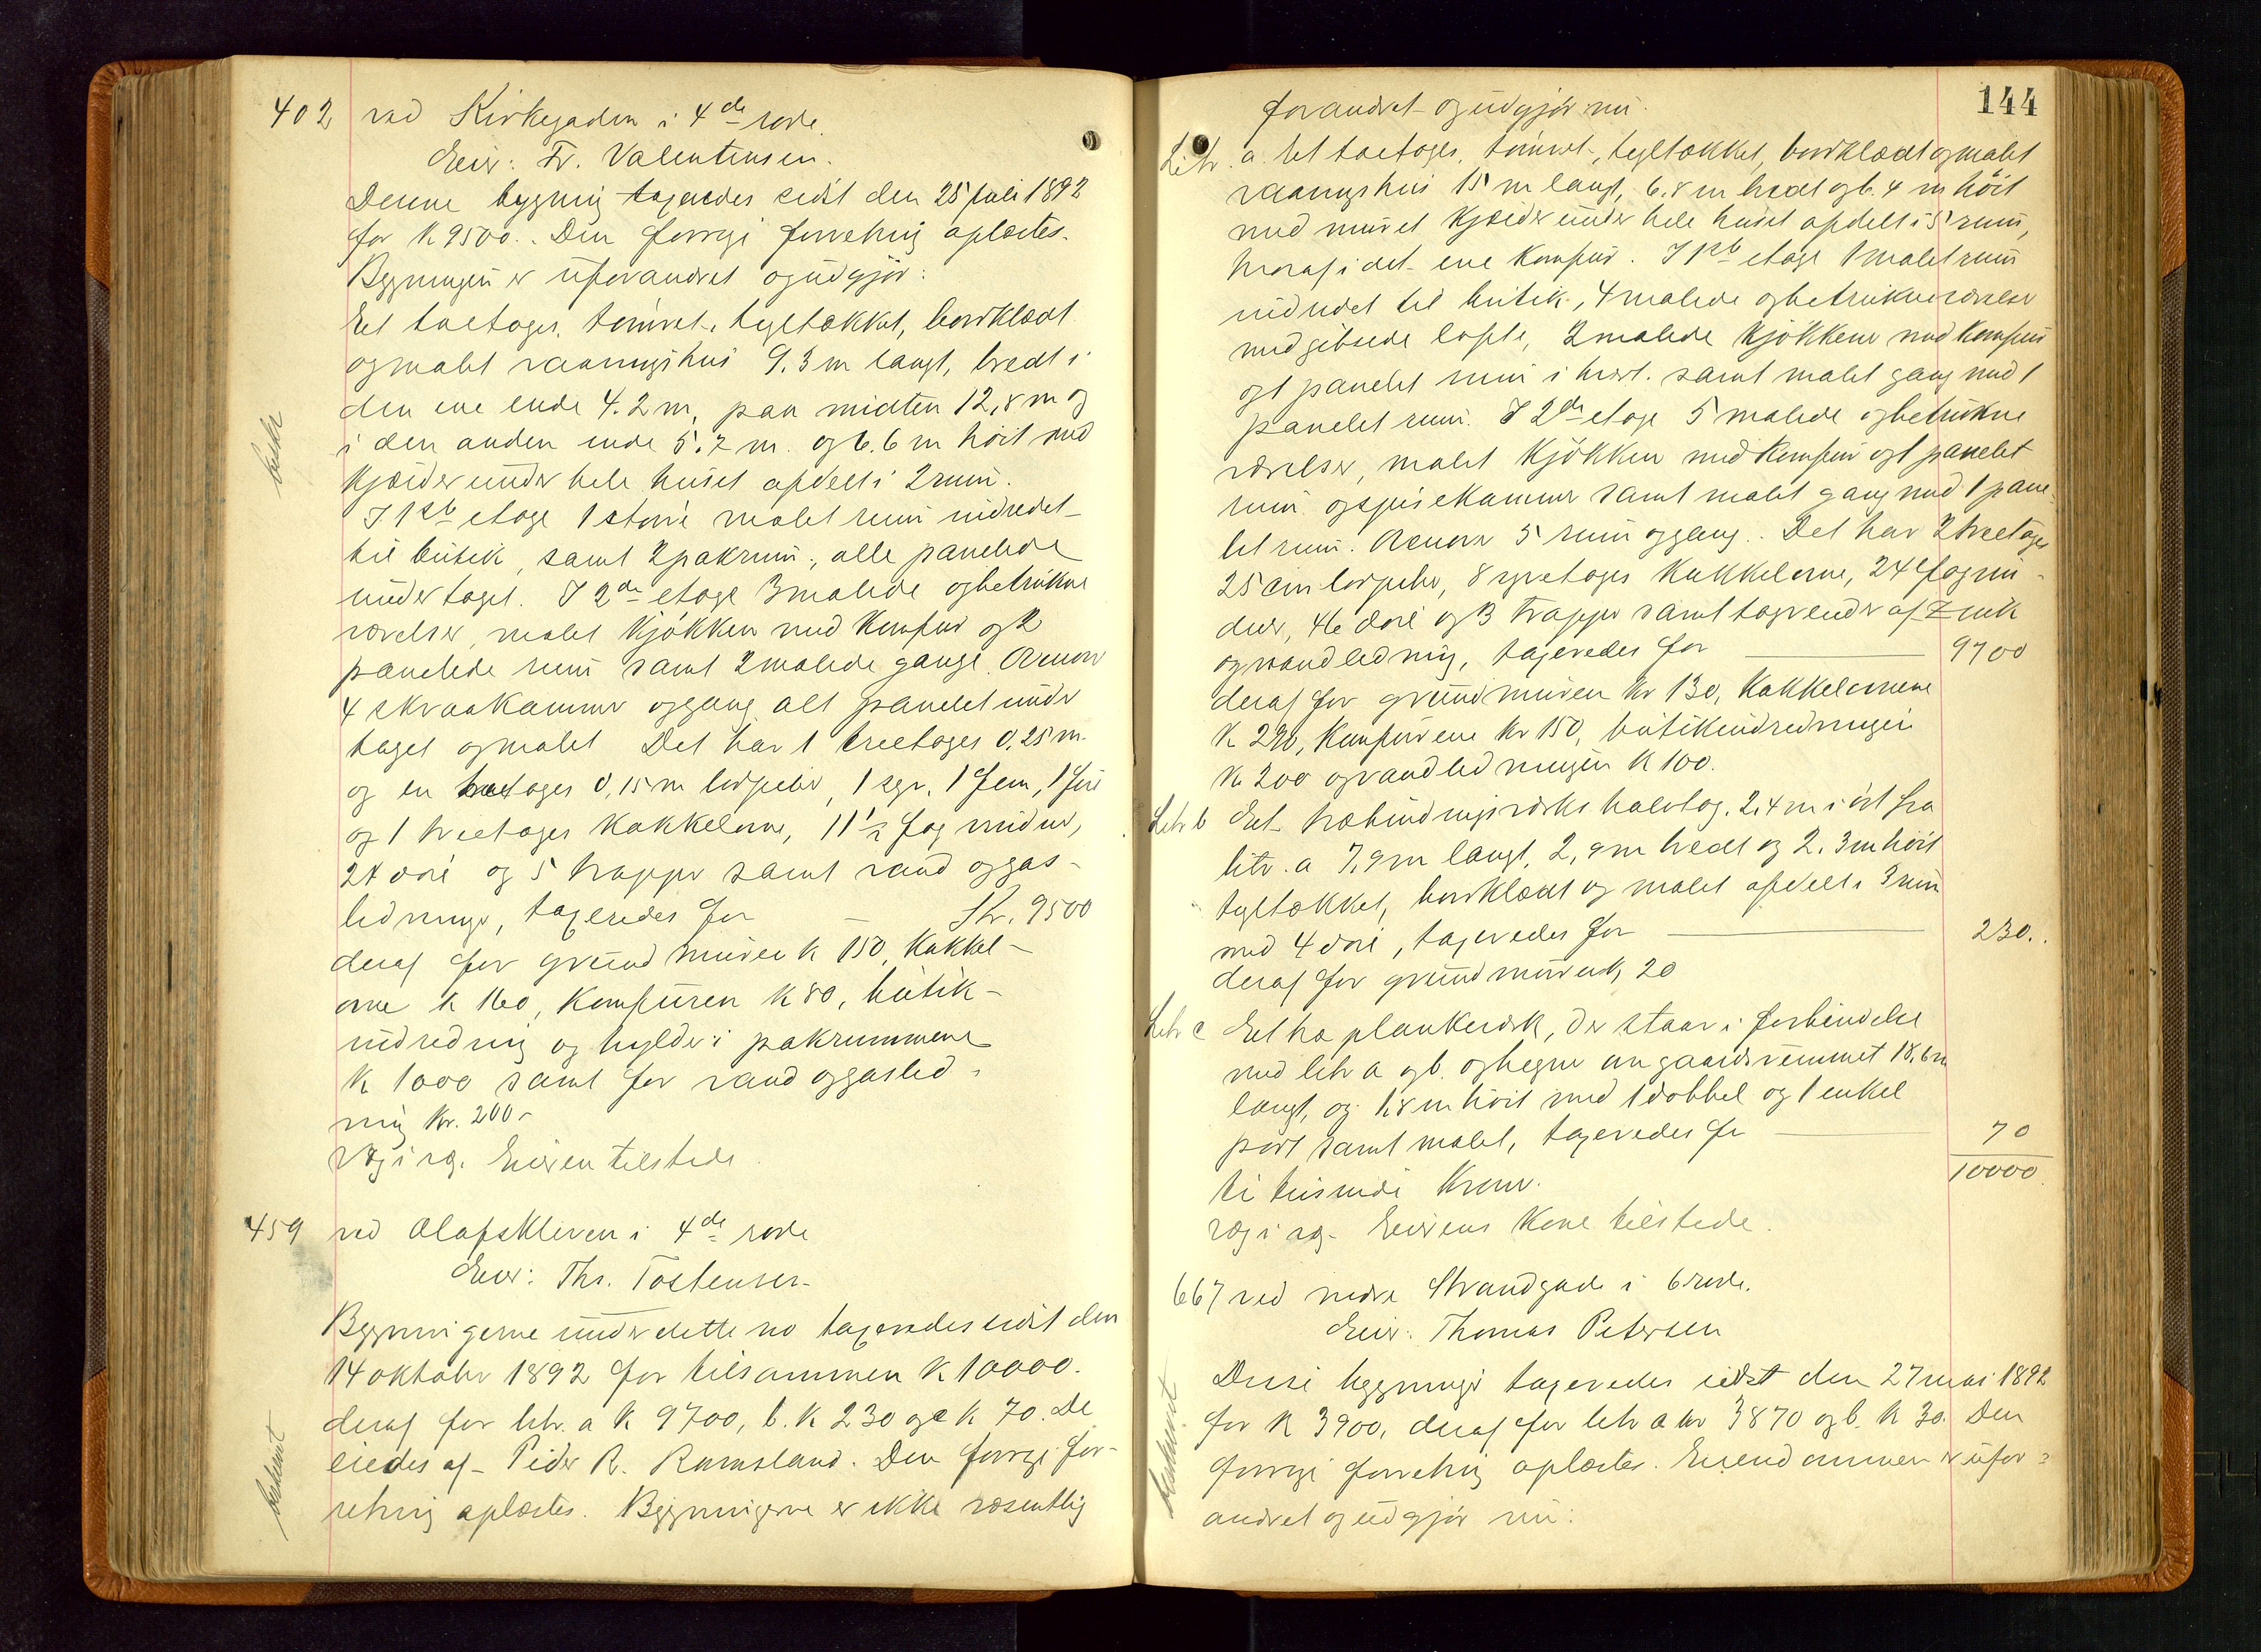 402 ved Kirkegaden i 4de rode.
Eier: Fr. Valentinsen.
Denne bygning taxeredes sidst den 25 juli 1892
for K 9500. Den forrige forretning oplæstes.
Bygningen er uforandret og udgjør:
Et toetages, tømret, tegltækket, bordklædt
og malet vaaningshus 9.3 m langt, bredt i
den ene ende 4.2 m, paa midten 12,8 m og
i den anden ende 5.7 m. og 6.6 m høit med
kjælder under hele huset afdelt i 2 rum.
I 1ste etage 1 større malet rum indredet
til butik, samt 2 pakrum, alle panelede
under taget. I 2den etage 3 malede og betrukne
værelser, malet kjøkken med komfur og 2
panelede rum samt 2 malede gange. Ovenover
4 skraakammer og gang alt panelet under
taget og malet Det har 1 treetages 0,25 m
og en toetages 0,15 m levpibe, 1 sex, 1 fem, 1 fire
og 1 treetages kakkelovne, 11 1/2 fag vinduer,
24 døre og 5 trapper samt vand og gas-
ledninger, taxeredes for — Kr. 9500
deraf for grundmuren K 150, kakkel-
ovne K 160, komfuren K 80, butik-
indredning og hylder i pakrummene
K 1000 samt for vand og gasled-
ning Kr. 200-
Vægisæ. Eieren tilstede.
459 ved Olafskleven i 4de rode
Eier: Ths. Tostensen
Bygningerne under dette no taxeredes sidst den
14 oktober 1892 for tilsammen K 10000.
deraf for litr. a K 9700, b. K 230 og c K 70. De
eiedes af Peder R. Ramsland. Den forrige for-
retning oplæstes. Bygningerne er ikke væsentlig
144
forandret og udgjør nu:
Litr. a. Et toetages, tømret, tegltækket, bordklædt og malet
vaaningshus 15 m langt, 6.8 m bredt og 6.4 m høit
med muret kjælder under hele huset afdelt i 5 rum,
hvoraf i det ene komfur. I 1ste etage 1 malet rum
indredet til butik, 4 malede og betrukne værelser
med gibsede lofte, 2 malede kjøkkener med komfur
og 1 panelet rum i hvert. samt malet gang med 1
panelet rum. I 2den etage 5 malede og betrukne
værelser, malet kjøkken med komfur og 1 panelet
rum og spisekammer samt malet gang med 1 pane-
let rum. Ovenover 5 rum og gang. Det har 2 treetages
25 cm levpiber, 8 syvetages kakkelovne, 24 fag vin-
duer, 46 døre og 3 trapper samt tagrender af zink
og vandledning, taxeredes for — 9700
deraf for grundmuren Kr 130, kakkelovnene
K 290, komfurene Kr 150, butikindredningen
K 200 og vandledningen K 100.
Litr b Et træbindingsværks halvtag. 2.4 m i øst fra
litr. a 7,9 m langt, 2,9 m bredt og 2.3 m høit
tegltækket, bordklædt og malet afdelt i 3 rum
med 4 døre, taxeredes for — 230.
deraf for grundmuren K 20
Litr c Et træ plankeværk, der staar i forbindelse
med litr a og b. og hegner om gaardsrummet 18,6 m
langt, og 1,8 m høit med 1 dobbel og 1 enkel
port samt malet, taxeredes for — 70
10000
ti tusinde Kroner.
Vægisæ. Eierens kone tilstede.
667 ved nedre Strandgade i 6 rode.
Eier: Thomas Petersen
Disse bygninger taxeredes sidst den 27 mai 1892
for K 3900, deraf for litr a Kr 3870 og b. K 30. Den
forrige forretning oplæstes. Eiendommen er ufor-
andret og udgjør nu: